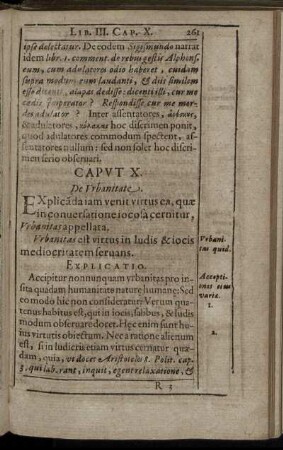 LIB. III. CAP. X. 261
ipse delectatur. De eodem Sigismundo narrat
idem libr. 1. comment. de rebus gestis Alphonsi,
eum, cum adulatores odio haberet, cuidam
supra modum eum laudanti, & diis similem
esse dicenti, alapas dedisse: dicenti illi, cur me
cædis Imperator? Respondisse, cur me mordes
adulator? Inter assentatores,
& adulatores, hoc discrimen ponit,
quod adulatores commodum spectent, as-
sentatores nullum: sed non solet hoc discri-
men serio observari.
CAPVT X.
De Vrbanitate.
EXplicãda iam venit virtus ea, quæ
in conversatione iocosa cernitur,
Vrbanitas appellata.
Vrbanitas est virtus in ludis & iocis
mediocritatem servans.
Vrbani-
tas quid.
EXPLICATIO.
Accipitur nonnunquam urbanitas pro in-
sita quadam humanitate naturæ humanæ: Sed
eo modo hic non consideratur: Verum qua-
tenus habitus est, qui in iocis, salibus, & ludis
modum observare docet. Hæc enim sunt hu-
ius virtutis obiectum. Nec a ratione alienum
est, si in ludicris etiam virtus cernatur quæ-
dam, quia, ut docet Aristoteles 8. Polit. cap.
3. qui laborant, inquit, egent relaxatione, &
Accepti-
ones eius
variæ.
1.
2.
R 3